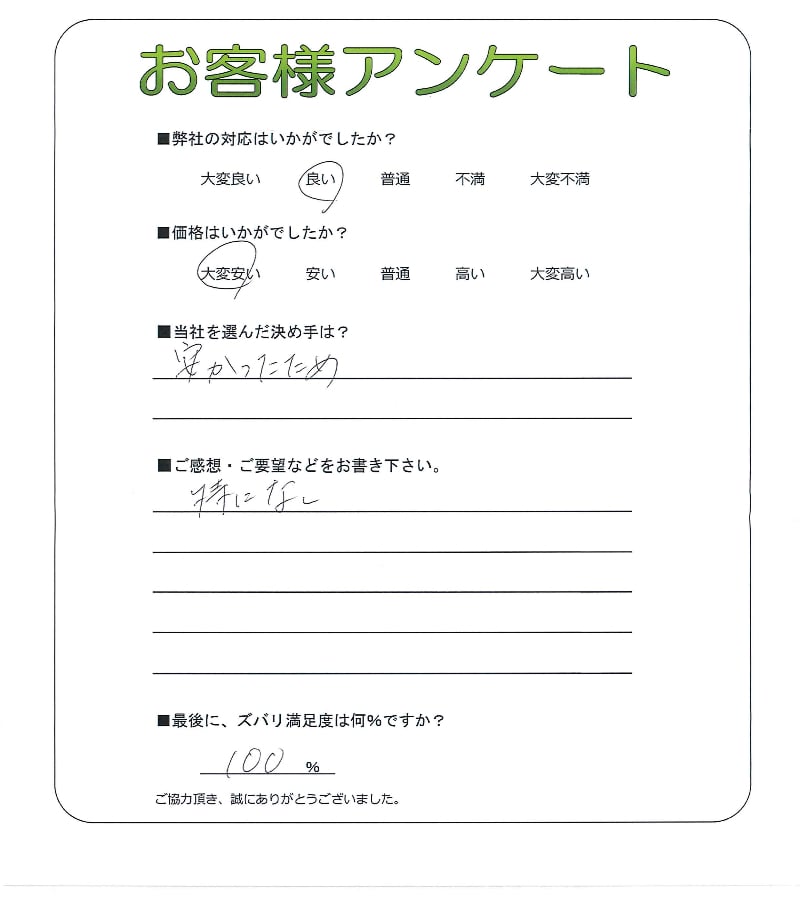 お客様アンケート
■弊社の対応はいかがでしたか？
大変良い 良い 普通 不満 大変不満
■価格はいかがでしたか？
大変安い 安い 普通 高い 大変高い
■当社を選んだ決め手は？
安かったため
■ご感想・ご要望などをお書き下さい。
特になし
■最後に、ズバリ満足度は何%ですか？
100 %
ご協力頂き、誠にありがとうございました。